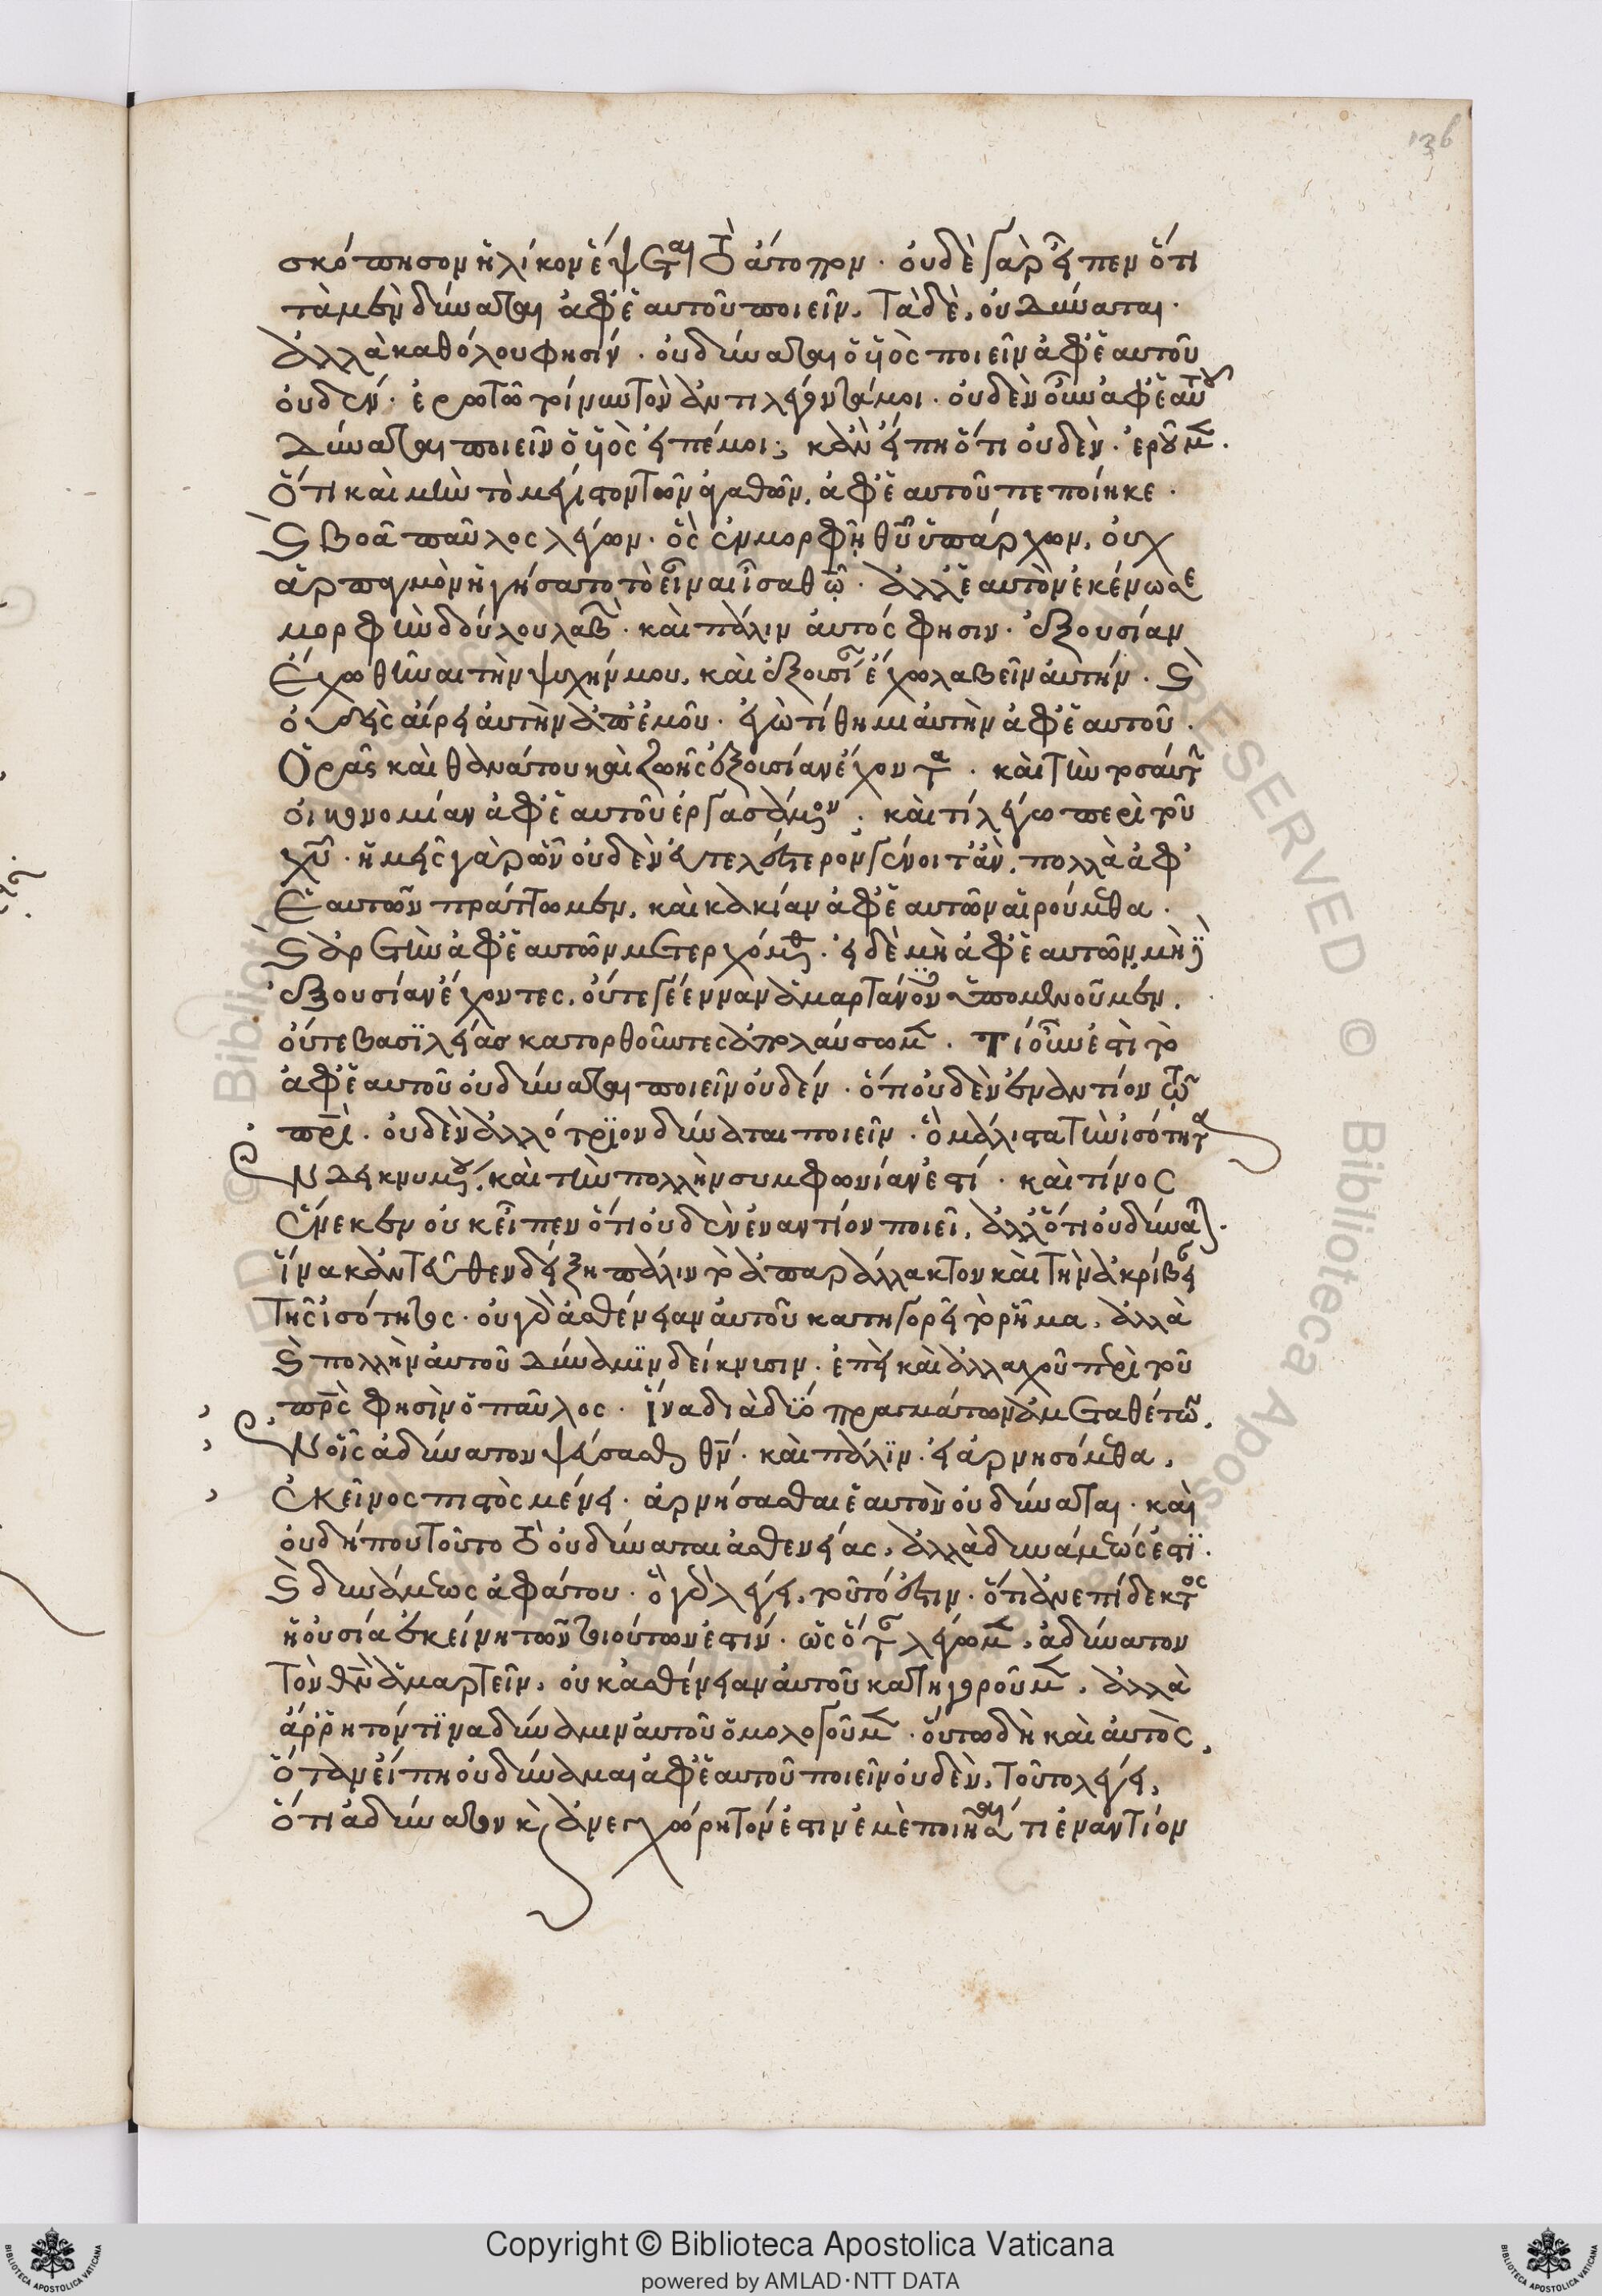 136
σκόπησον ἡλίκον ἕψεται τὸ ἄτοπον · οὐδὲ γὰρ εἶπεν ὅτι
τὰ μὲν δύναται ἀφ' ἑαυτοῦ ποιεῖν, τὰ δὲ, οὐ δύναται ·
ἀλλὰ καθόλου φησίν · οὐ δύναται ὁ υἱὸς ποιεῖν ἀφ' ἑαυτοῦ
οὐδέν · ἐρωτῶ τοίνυν τὸν ἀντιλέγοντά μοι · οὐδὲν οὖν ἀφ' ἑαυτοῦ
δύναται ποιεῖν ὁ υἱὸς εἰπέ μοι; κἂν εἴπῃ ὅτι οὐδὲν · ἐροῦμεν ·
ὅτι καὶ μὴν τὸ μέγιστον τῶν ἀγαθῶν, ἀφ' ἑαυτοῦ πεποίηκε ·
καὶ βοᾶ παῦλος λέγων · ὃς ἐν μορφῇ θυ ὑπάρχων, οὐχ
ἁρπαγμὸν ἡγήσατο τὸ εἶναι ἶσα θῶ · ἀλλ' ἑαυτὸν ἐκένωσε
μορφὴν δούλου λαβὼν · καὶ πάλιν αὐτός φησιν · ἐξουσίαν
ἔχω θῆναι τὴν ψυχήν μου, καὶ ἐξουσίαν ἔχω λαβεῖν αὐτήν · καὶ
οὐδεὶς αἴρει αὐτὴν ἀπ' ἐμοῦ · ἐγὼ τίθημι αὐτὴν ἀφ' ἑαυτοῦ ·
Ὁρᾶς καὶ θανάτου καὶ ζωῆς ἐξουσίαν ἔχοντα · καὶ τὴν τοσαύτην
οἰκονομίαν ἀφ' ἑαυτοῦ ἐργασάμενον · καὶ τί λέγω περὶ τοῦ
χυ · ἡμεῖς γὰρ ὧν οὐδὲν εὐτελέστερον γένοιτ' ἂν, πολλὰ ἀφ'
ἑαυτῶν πράττωμεν, καὶ κακίαν ἀφ' ἑαυτῶν αἱρούμεθα ·
καὶ ἀρετὴν ἀφ' ἑαυτῶν μετερχόμεθα · εἰ δὲ μὴ ἀφ' ἑαυτῶν, μηδὲ
ἐξουσίαν ἔχοντες, οὔτε γέενναν ἁμαρτάνοντες ὑπομενοῦμεν,
οὔτε βασιλείας κατορθοῦντες ἀπολαύσωμεν · Τί οὖν ἐστὶ τὸ
ἀφ' ἑαυτοῦ οὐ δύναται ποιεῖν οὐδέν · ὅτι οὐδὲν ἐναντίον τῶ
πρι · οὐδὲν ἀλλότριον δύναται ποιεῖν · ὃ μάλιστα τὴν ἰσότητα
ἐνδεικνυμένου, καὶ τὴν πολλὴν συμφωνίαν ἐστί · καὶ τίνος
ἕνεκεν οὐκ εἶπεν ὅτι οὐδὲν ἐναντίον ποιεῖ, ἀλλ' ὅτι οὐ δύναται ·
ἵνα κἀντεῦθεν δείξῃ πάλιν τὸ ἀπαράλλακτον καὶ τὴν ἀκρίβειαν
τῆς ἰσότητος · οὐ γὰρ ἀσθένειαν αὐτοῦ κατηγορεῖ τὸ ῥῆμα, ἀλλὰ
καὶ πολλὴν αὐτοῦ δύναμιν δείκνυσιν · ἐπεὶ καὶ ἀλλαχοῦ περὶ τοῦ
πρς φησὶν ὁ παῦλος · ἵνα διὰ δύο πραγμάτων ἀμεταθέτων,
ἐν οἷς ἀδύνατον ψεύσασθαι θν · καὶ πάλιν · εἰ ἀρνησόμεθα,
ἐκεῖνος πιστὸς μένει · ἀρνήσασθαι ἑαυτὸν οὐ δύναται · καὶ
οὐ δήπου τοῦτο τὸ οὐ δύναται ἀσθενείας, ἀλλὰ δυνάμεώς ἐστι ·
καὶ δυνάμεως ἀφάτου · ὃ γὰρ λέγει, τοῦτό ἐστιν · ὅτι ἀνεπίδεκτος
ἡ οὐσία ἐκείνη τῶν τοιούτων ἐστίν · ὡς ὅταν λέγωμεν, ἀδύνατον
τὸν θν ἁμαρτεῖν, οὐκ ἀσθένειαν αὐτοῦ κατηγοροῦμεν, ἀλλὰ
ἄρρητόν τινα δύναμιν αὐτοῦ ὁμολογοῦμεν · οὕτω δὴ καὶ αὐτὸς,
ὅταν εἴπῃ οὐ δύναμαι ἀφ' ἑαυτοῦ ποιεῖν οὐδὲν, τοῦτο λέγει,
ὅτι ἀδύνατον καὶ ἀνεγχώρητόν ἐστιν ἐμὲ ποιῆσαί τι ἐναντίον
Copyright © Biblioteca Apostolica Vaticana
powered by AMLAD·NTT DATA